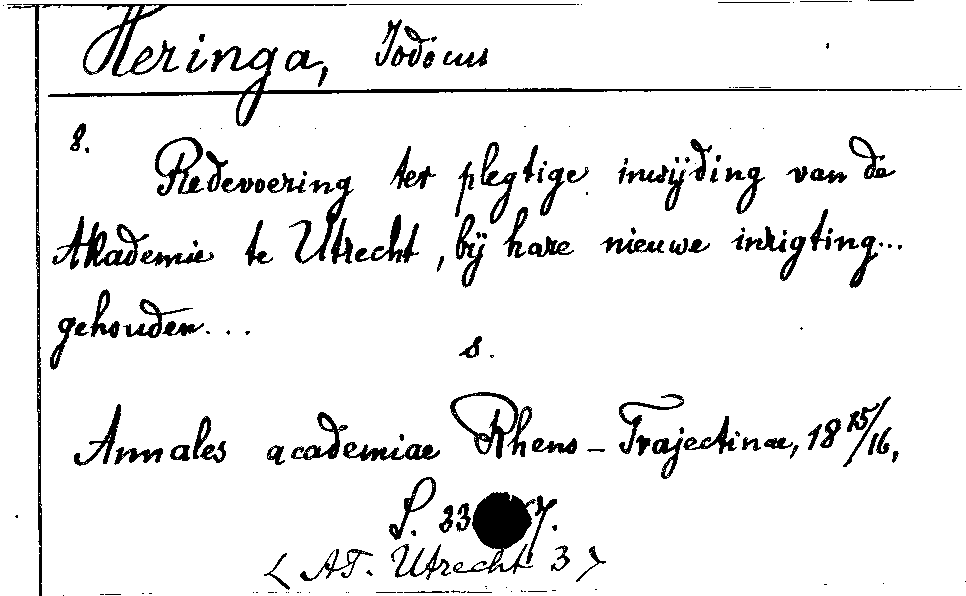 Heringa, Jodocus
8.
Redevoering ter plegtige inwijding van de
Akademie te Utrecht, bij hare nieuwe inrigting...
gehouden...
s.
Annales academiae Rheno-Trajectinae, 1815/16,
S. 33
< AT. Utrecht 3 >